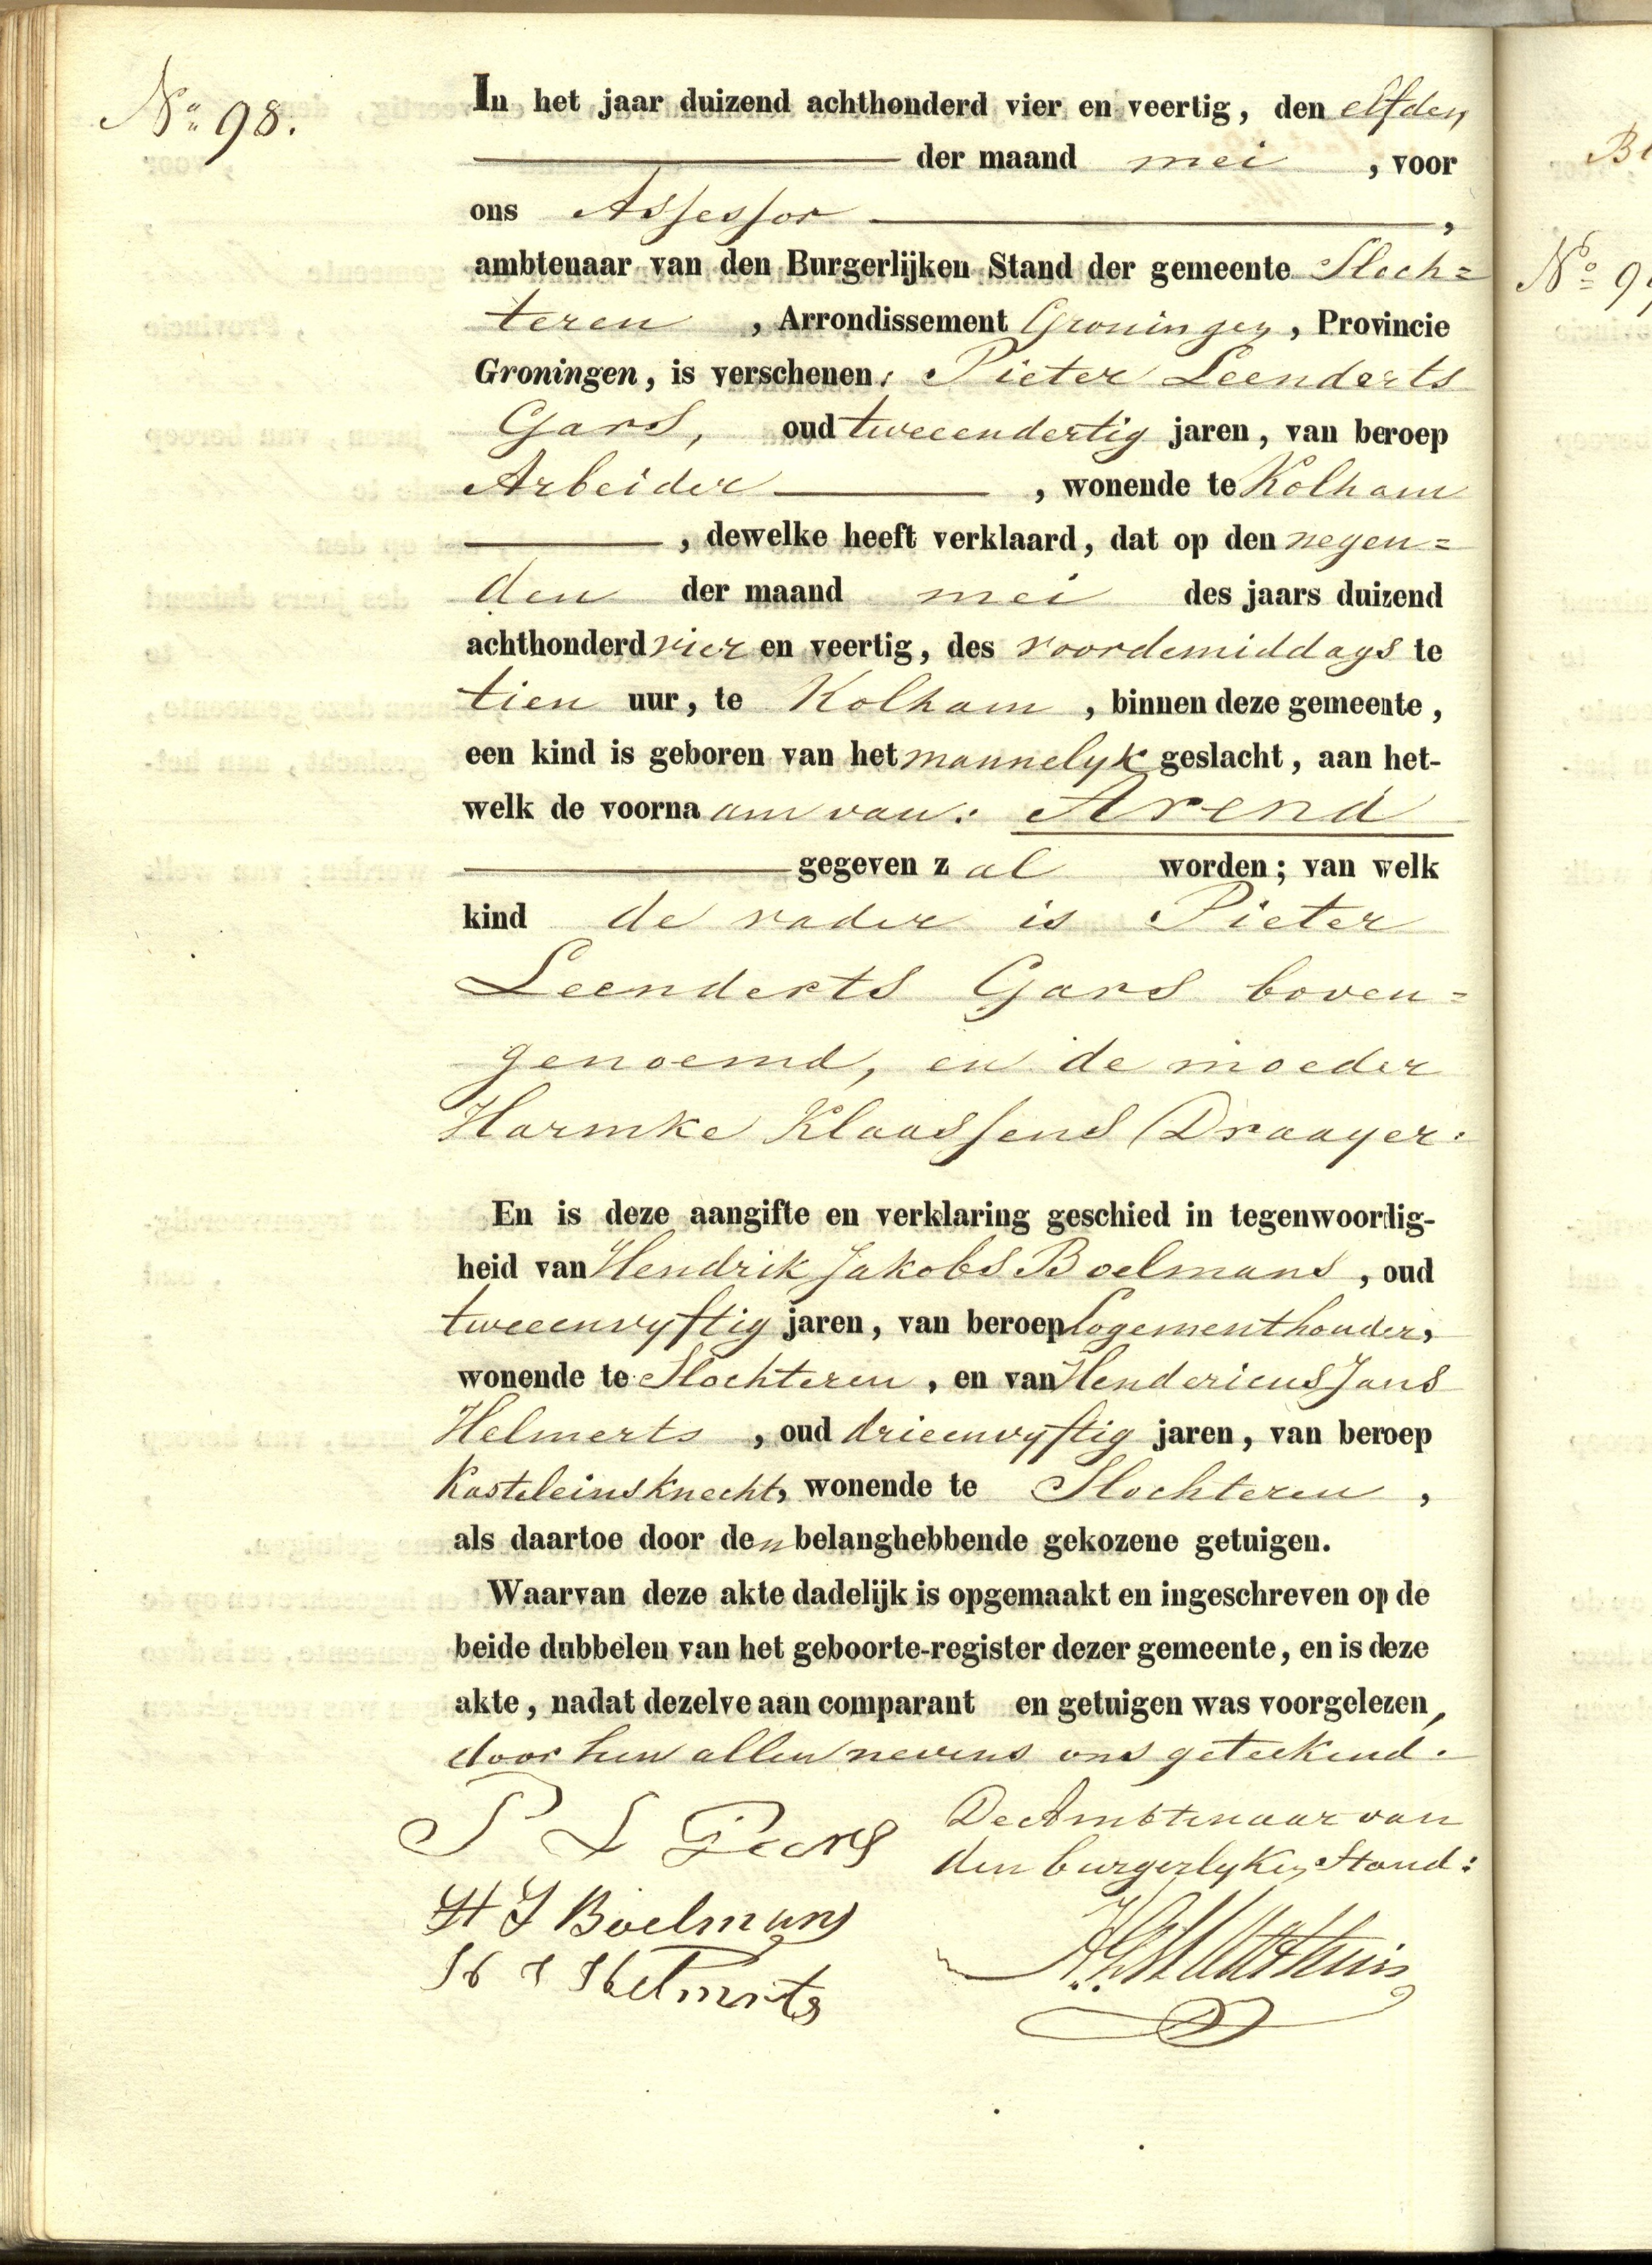 No 98.
In het jaar duizend achthonderd vier en veertig, den elfden
der maand mei , voor
ons Assessor ,
ambtenaar van den Burgerlijken Stand der gemeente Sloch=
teren , Arrondissement Groningen , Provincie
Groningen, is verschenen: Pieter Leenderts
Gars, oud tweeendertig jaren, van beroep
Arbeider , wonende te Kolham
, dewelke heeft verklaard, dat op den negen=
den der maand mei des jaars duizend
achthonderd vier en veertig, des voordemiddags te
tien uur, te Kolham , binnen deze gemeente,
een kind is geboren van het mannelyk geslacht, aan het-
welk de voorna am van: Arend
gegeven z al worden; van welk
kind de vader is Pieter
Leenderts Gars boven=
genoemd, en de moeder
Harmke Klaassens Draayer.
En is deze aangifte en verklaring geschied in tegenwoordig-
heid van Hendrik Jakobs Boelmans , oud
tweeenvyftig jaren, van beroep Logementhouder,
wonende te Slochteren , en van Hendericus Jans
Helmerts , oud drieenvyftig jaren, van beroep
Kasteleinsknecht, wonende te Slochteren ,
als daartoe door den belanghebbende gekozene getuigen.
Waarvan deze akte dadelijk is opgemaakt en ingeschreven op de
beide dubbelen van het geboorte-register dezer gemeente, en is deze
akte, nadat dezelve aan comparant en getuigen was voorgelezen,
door hen allen nevens ons geteekend.
P L
De Ambtenaar van
den burgerlyken Stand:
H J Boelmans
H J Helmerts
No 9